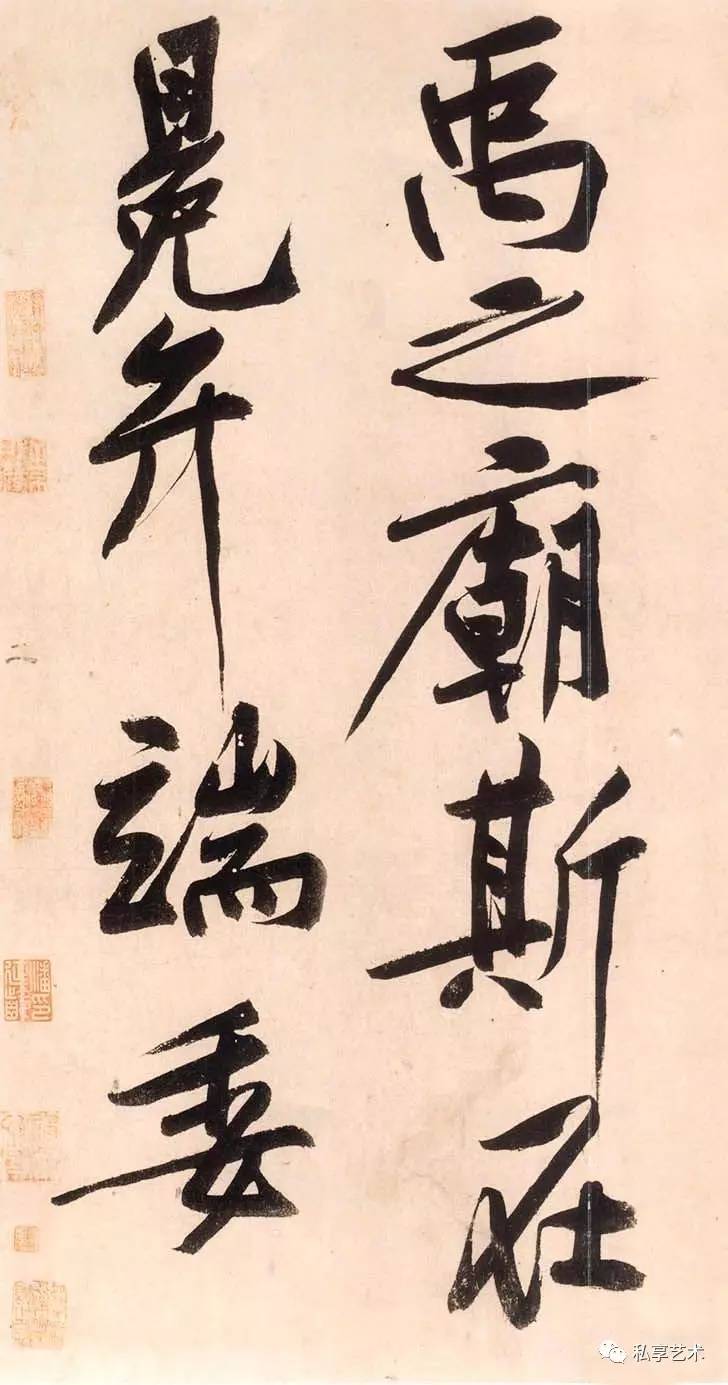 禹之廟斯在
冕弁端委
私享艺术